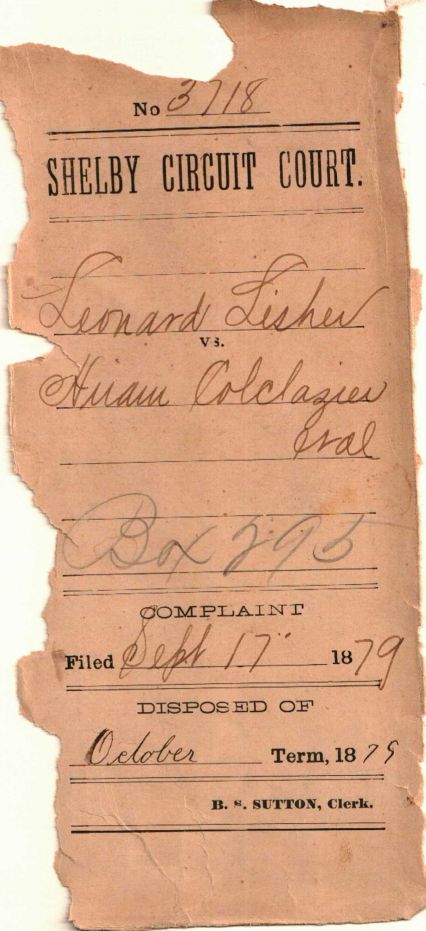 No 3718
SHELBY CIRCUIT COURT.
Leonard Lisher
vs.
Hiram Colclazier
et al
Box 295
COMPLAINT
Filed Sept 17" 1879
DISPOSED OF
October Term, 1879
B. S. SUTTON, Clerk.